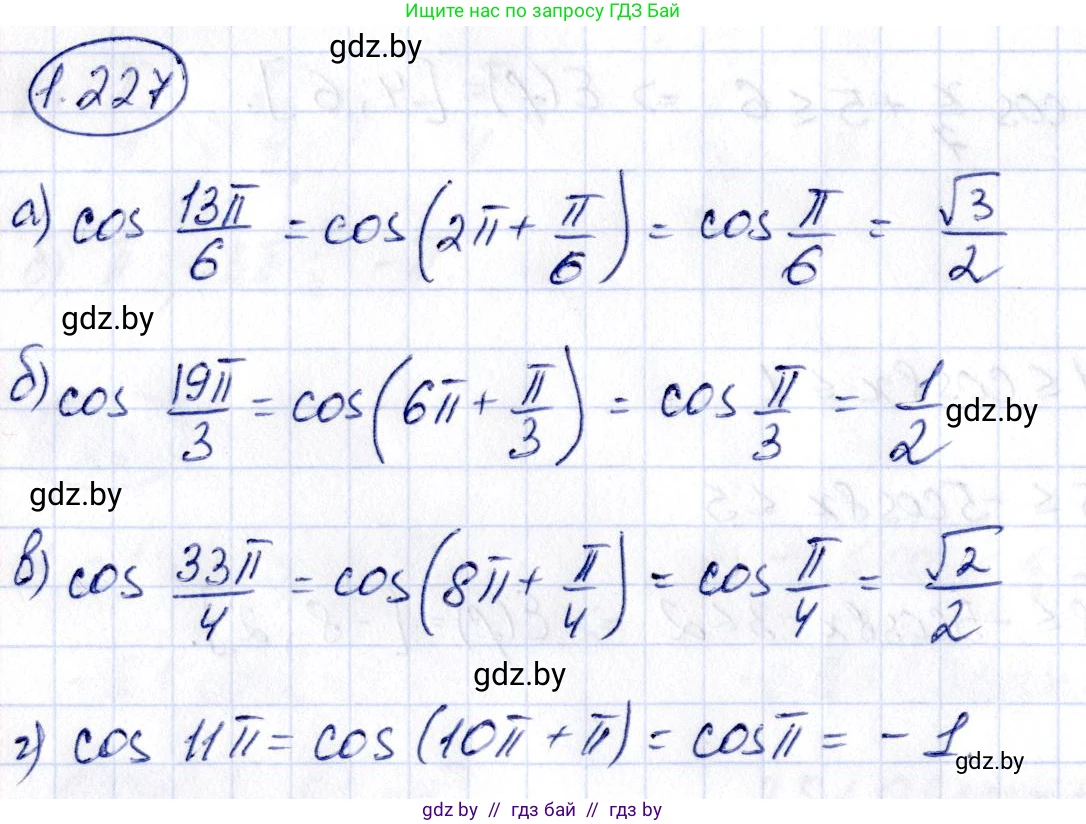 Ищите нас по запросу ГДЗ Бай
gdz.by
1.227
а) cos 13π/6 = cos(2π + π/6) = cos π/6 = √3/2
gdz.by
б) cos 19π/3 = cos(6π + π/3) = cos π/3 = 1/2
gdz.by
gdz.by
в) cos 33π/4 = cos(8π + π/4) = cos π/4 = √2/2
gdz.by
г) cos 11π = cos(10π + π) = cos π = -1.
gdz.by
gdz.by // гдз бай // гдз by